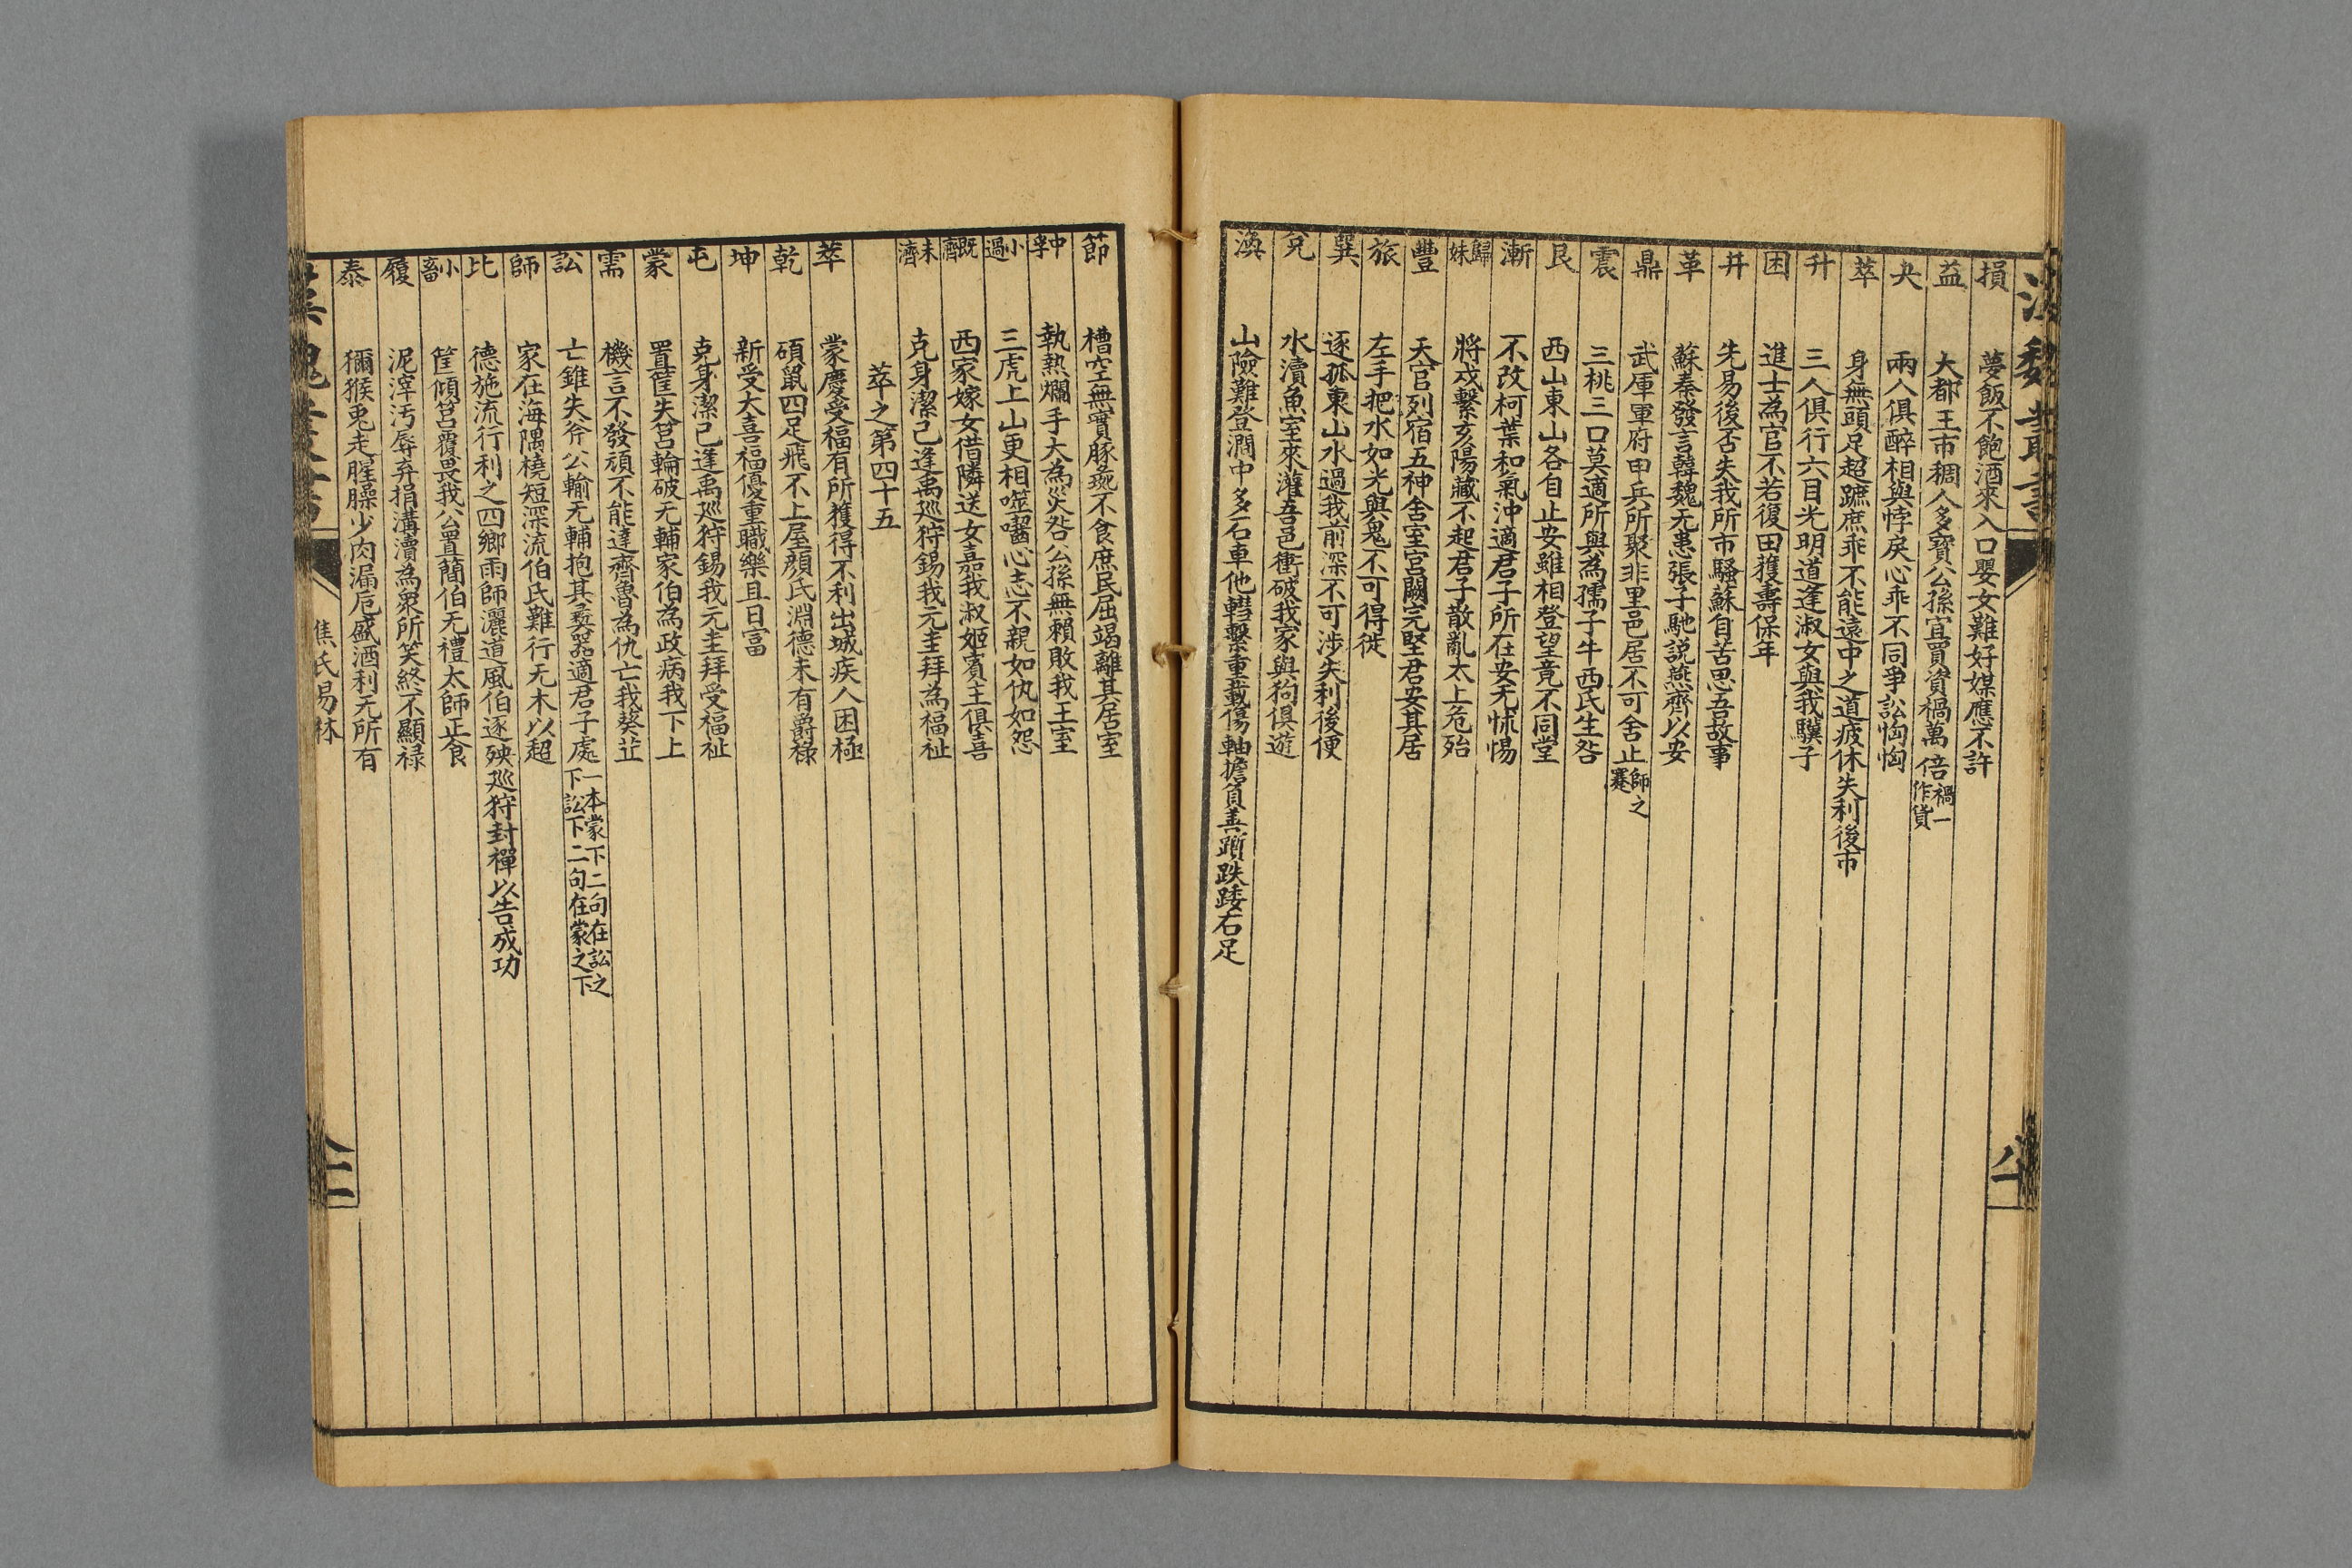 損 夢飯不飽酒來入口嬰女難好媒應不許
益 大都王市稠人多寶公孫宜賈資禍萬倍禍一作貨
夬 兩人俱醉相與悖戾心乖不同爭訟恟恟
萃 身無頭足超蹠庶乖不能遠中之道疲休失利後市
升 三人俱行六目光明道逢淑女與我驥子
困 進士為官不若復田獲壽保年
井 先易後否失我所市騷蘇自苦思吾故事
革 蘇秦發言韓魏无患張子馳說燕齊以安
鼎 武庫軍府甲兵所聚非里邑居不可舍止師之蹇
震 三桃三口莫適所與為孺子牛西氏生咎
艮 西山東山各自止安雖相登望竟不同堂
漸 不改柯葉和氣沖適君子所在安无怵惕
歸妹 將戍繫亥陽藏不起君子散亂太上危殆
豐 天官列宿五神舍室宮闕完堅君安其居
旅 左手把水如光與鬼不可得從
巽 逐狐東山水過我前深不可涉失利後便
兌 水瀆魚室來灌吾邑衝破我家與狗俱遊
渙 山險難登澗中多石車他轊擊重載傷軸擔負善躓跌踒右足
節 槽空無實豚彘不食庶民屈竭離其居室
中孚 執熱爛手大為災咎公孫無賴敗我王室
小過 三虎上山更相噬嚙心志不親如仇如怨
既濟 西家嫁女借隣送女嘉我淑姬賓主俱喜
未濟 克身潔己逢禹巡狩錫我元圭拜為福祉
萃之第四十五
萃 蒙慶受福有所獲得不利出城疾人困極
乾 碩鼠四足飛不上屋顏氏淵德未有爵祿
坤 新受大喜福優重職樂且日富
屯 克身潔己逢禹巡狩錫我元圭拜受福祉
蒙 置筐失筥輪破无輔家伯為政病我下土
需 機言不發頑不能達齊魯為仇亡我葵丘
訟 亡錐失斧公輸无輔抱其彝器適君子處一本蒙下二句在訟之下訟下二句在蒙之下
師 家在海隅橈短深流伯氏難行无木以超
比 德施流行利之四鄉雨師灑道風伯逐殃巡狩封禪以告成功
小畜 筐傾筥覆畏我公置簡伯无禮太師正食
履 泥滓汚辱弃捐溝瀆為衆所笑終不顯祿
泰 獼猴兎走腥臊少肉漏卮盛酒利无所有
焦氏易林